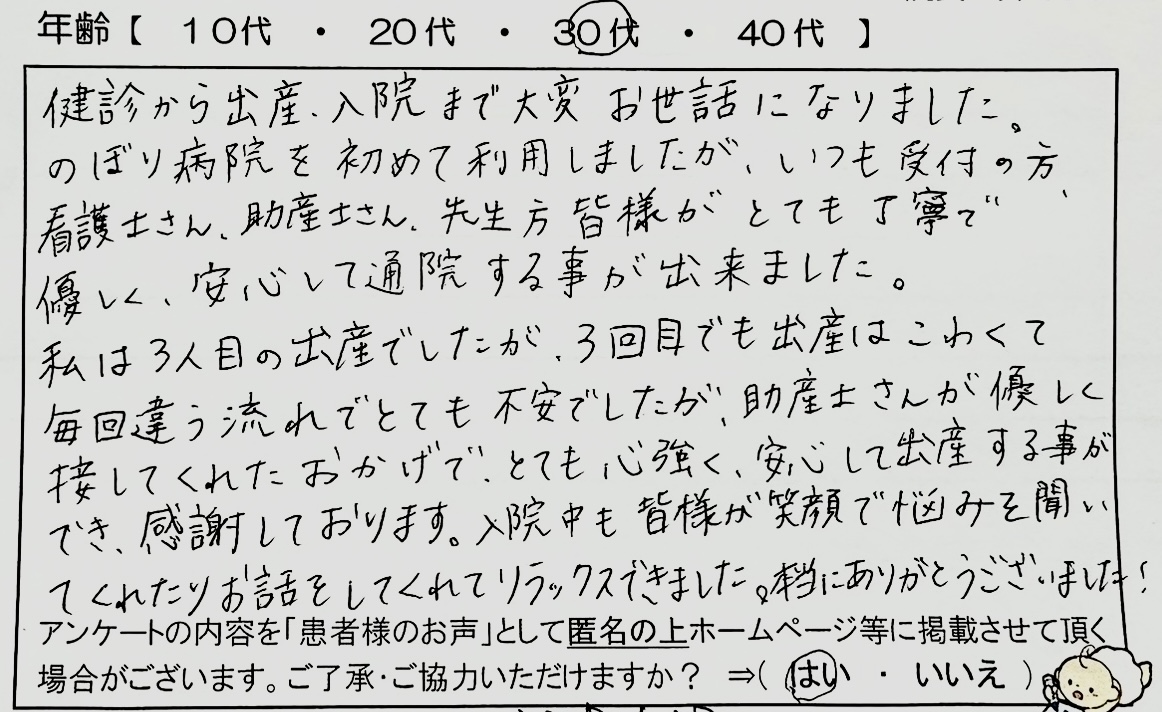 年齢【 10代 ・ 20代 ・ 30代 ・ 40代 】
健診から出産、入院まで大変お世話になりました。
のぼり病院を初めて利用しましたが、いつも受付の方、
看護士さん、助産士さん、先生方皆様がとても丁寧で
優しく、安心して通院する事が出来ました。
私は3人目の出産でしたが、3回目でも出産はこわくて
毎回違う流れでとても不安でしたが、助産士さんが優しく
接してくれたおかげで、とても心強く、安心して出産する事が
でき、感謝しております。入院中も皆様が笑顔で悩みを聞い
てくれたりお話をしてくれてリラックスできました。本当にありがとうございました!
アンケートの内容を「患者様のお声」として匿名の上ホームページ等に掲載させて頂く
場合がございます。ご了承・ご協力いただけますか? ⇒( はい ・ いいえ )